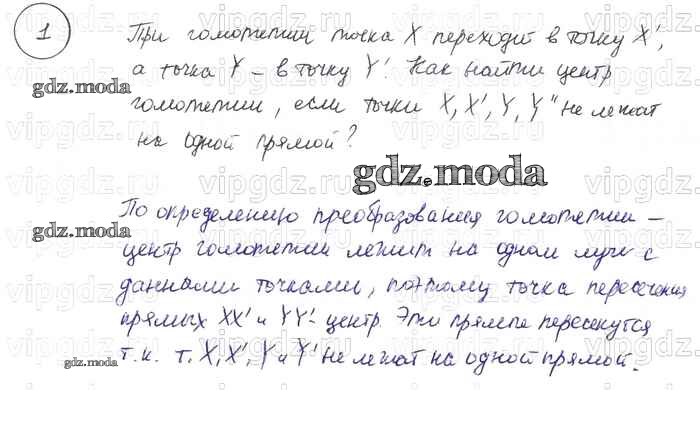 1 При гомотетии точка X переходит в точку X',
а точка Y – в точку Y'. Как найти центр
гомотетии, если точки X, X', Y, Y" не лежат
на одной прямой?
gdz.moda
gdz.moda
По определению преобразования гомотетии –
центр гомотетии лежит на одном луче с
gdz.moda
данными точками, поэтому точка пересечения
прямых XX' и YY' - центр. Эти прямые пересекутся
т.к. т. X, X', Y и Y' не лежат на одной прямой.
gdz.moda